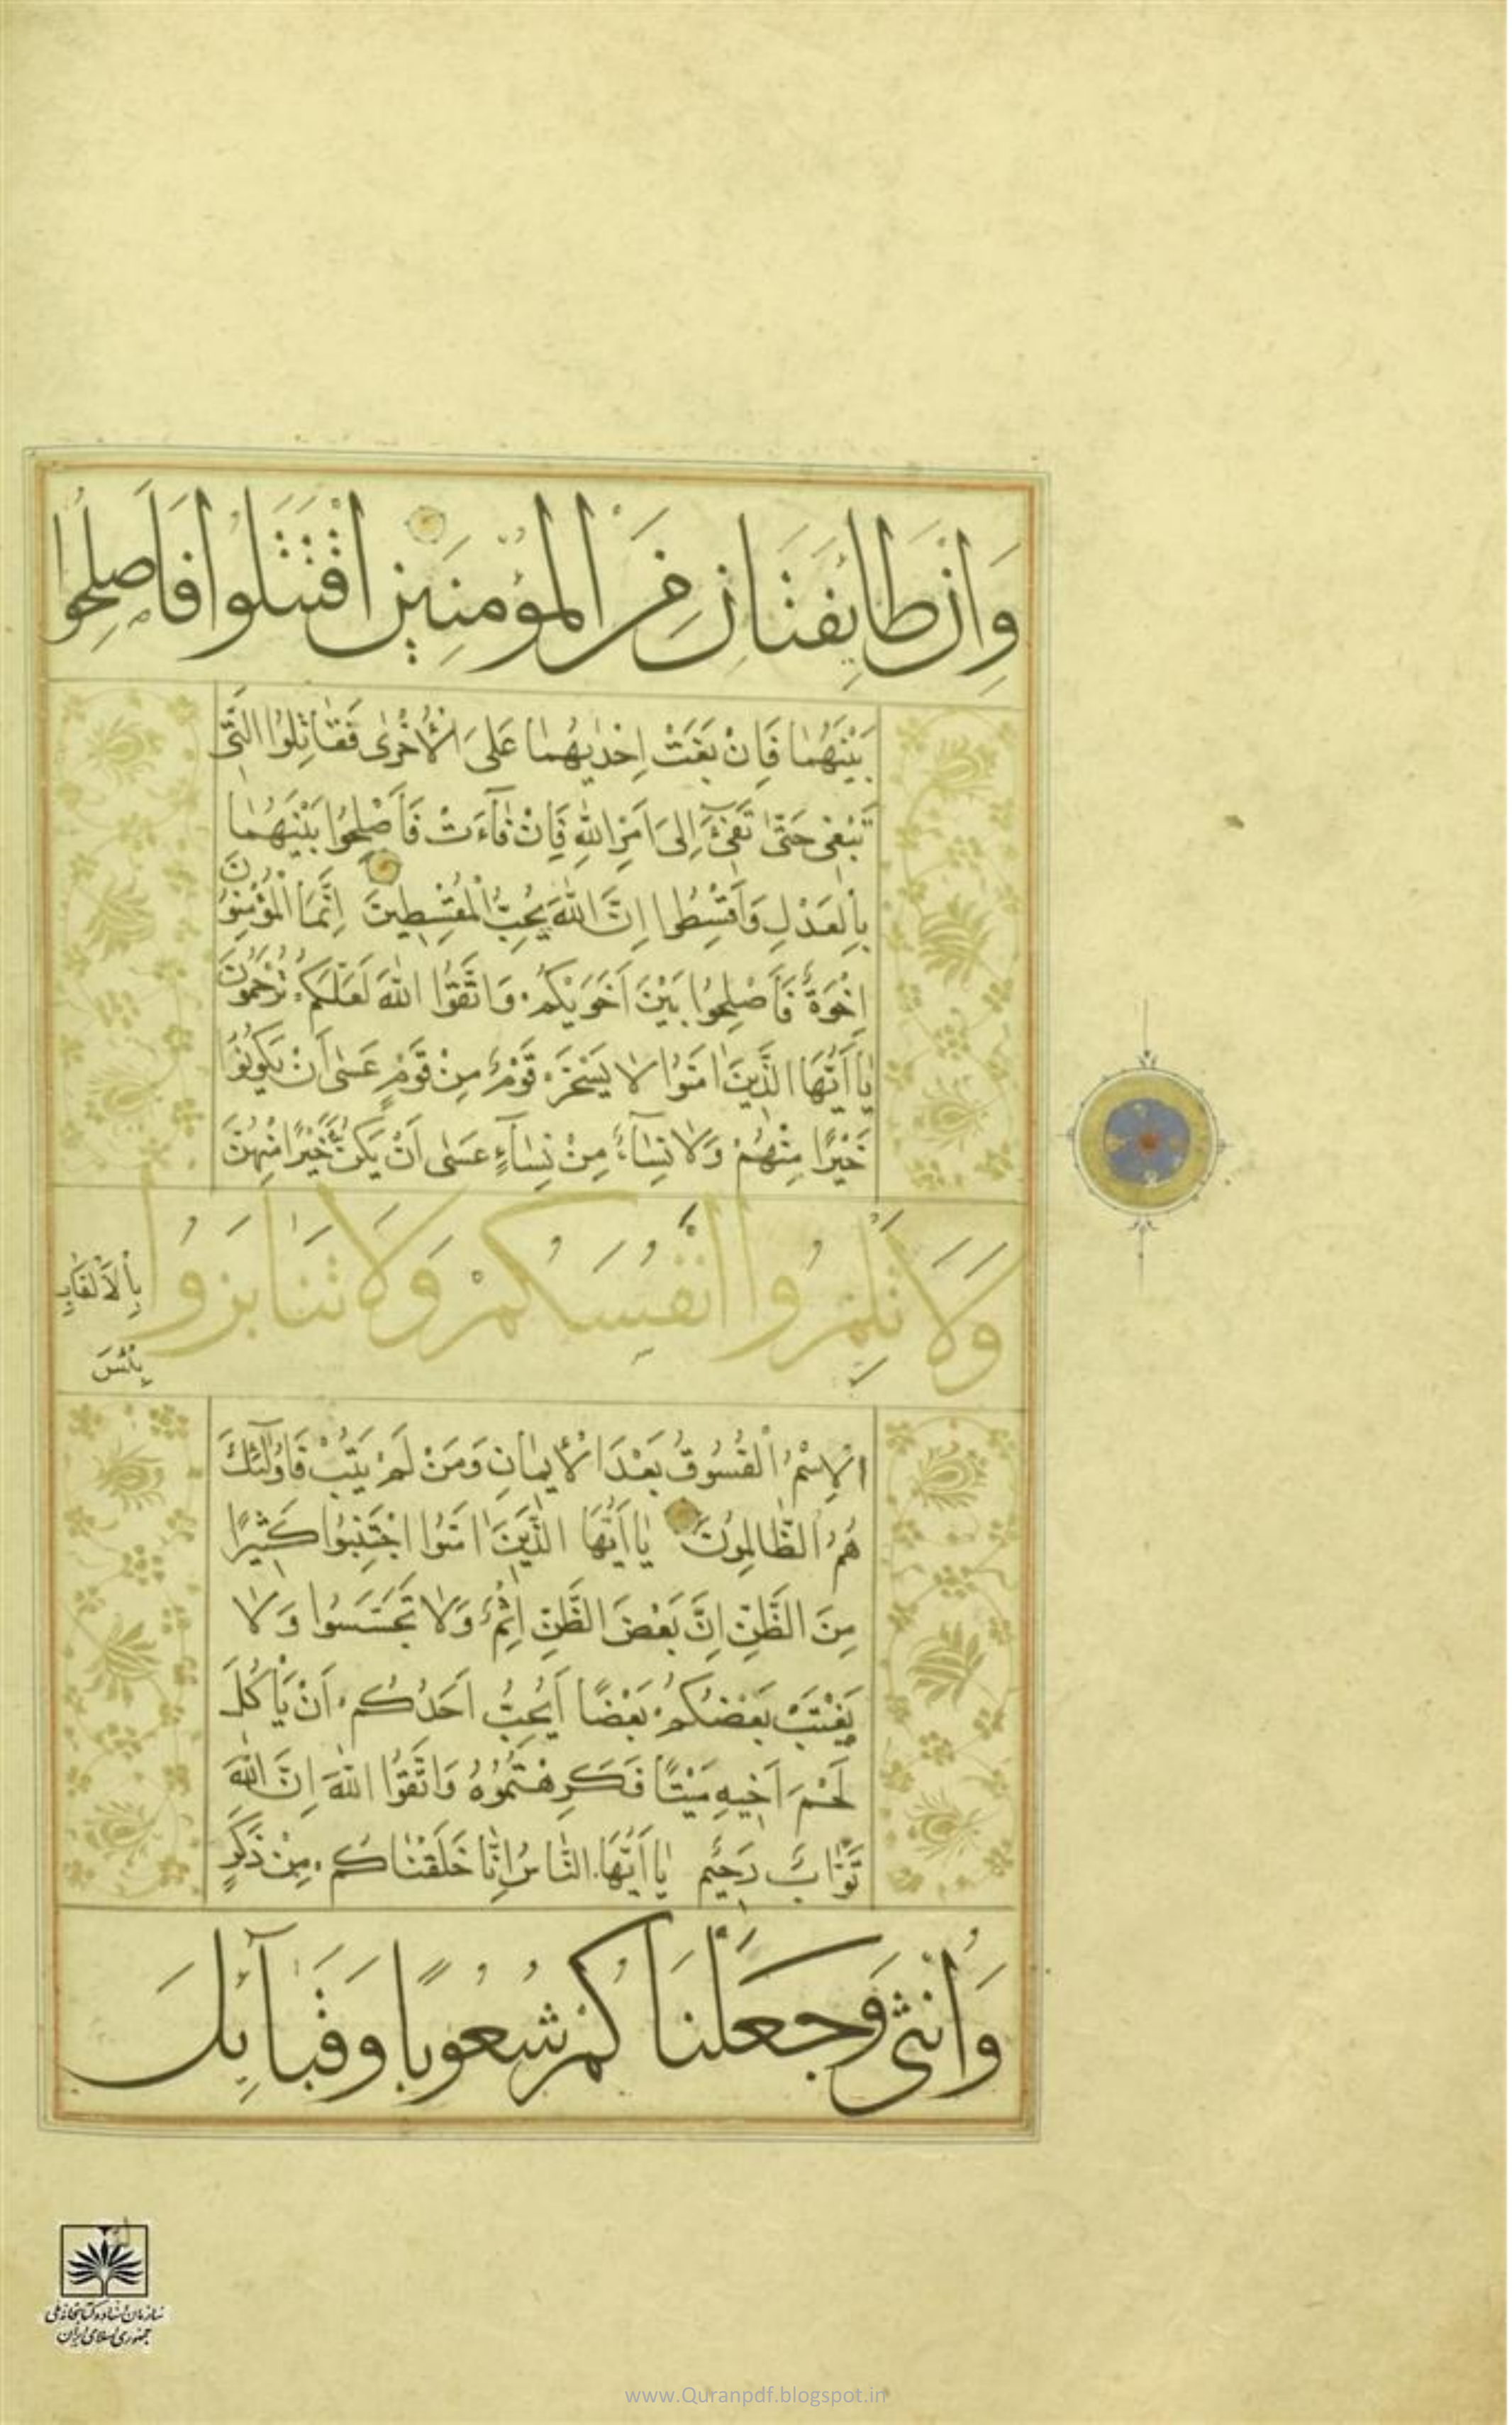 وَاِنْ طَائِفَتَانِ مِنَ الْمُؤْمِنِينَ اقْتَتَلُوا فَاَصْلِحُوا
بَيْنَهُمَا فَاِنْ بَغَتْ اِحْدٰيهُمَا عَلَى الْاُخْرٰى فَقَاتِلُوا الَّتِى
تَبْغِى حَتّٰى تَفِىٓءَ اِلٰٓى اَمْرِ اللهِ فَاِنْ فَآءَتْ فَاَصْلِحُوا بَيْنَهُمَا
بِالْعَدْلِ وَاَقْسِطُوا اِنَّ اللهَ يُحِبُّ الْمُقْسِطِينَ اِنَّمَا الْمُؤْمِنُونَ
اِخْوَةٌ فَاَصْلِحُوا بَيْنَ اَخَوَيْكُمْ وَاتَّقُوا اللهَ لَعَلَّكُمْ تُرْحَمُونَ
يٰااَيُّهَا الَّذِينَ اٰمَنُوا لَا يَسْخَرْ قَوْمٌ مِنْ قَوْمٍ عَسٰى اَنْ يَكُونُوا
خَيْرًا مِنْهُمْ وَلَا نِسَآءٌ مِنْ نِسَآءٍ عَسٰى اَنْ يَكُنَّ خَيْرًا مِنْهُنَّ
وَلَا تَلْمِزُوا اَنْفُسَكُمْ وَلَا تَنَابَزُوا بِالْاَلْقَابِ
بِئْسَ
الْاِسْمُ الْفُسُوقُ بَعْدَ الْاِيمَانِ وَمَنْ لَمْ يَتُبْ فَاُولٰٓئِكَ
هُمُ الظَّالِمُونَ يٰااَيُّهَا الَّذِينَ اٰمَنُوا اجْتَنِبُوا كَثِيرًا
مِنَ الظَّنِّ اِنَّ بَعْضَ الظَّنِّ اِثْمٌ وَلَا تَجَسَّسُوا وَلَا
يَغْتَبْ بَعْضُكُمْ بَعْضًا اَيُحِبُّ اَحَدُكُمْ اَنْ يَأْكُلَ
لَحْمَ اَخِيهِ مَيْتًا فَكَرِهْتُمُوهُ وَاتَّقُوا اللهَ اِنَّ اللهَ
تَوَّابٌ رَحِيمٌ يٰااَيُّهَا النَّاسُ اِنَّا خَلَقْنَاكُمْ مِنْ ذَكَرٍ
وَاُنْثٰى وَجَعَلْنَاكُمْ شُعُوبًا وَقَبَآئِلَ
سازمان اسناد و کتابخانه ملی
جمهوری اسلامی ایران
www.Quranpdf.blogspot.in